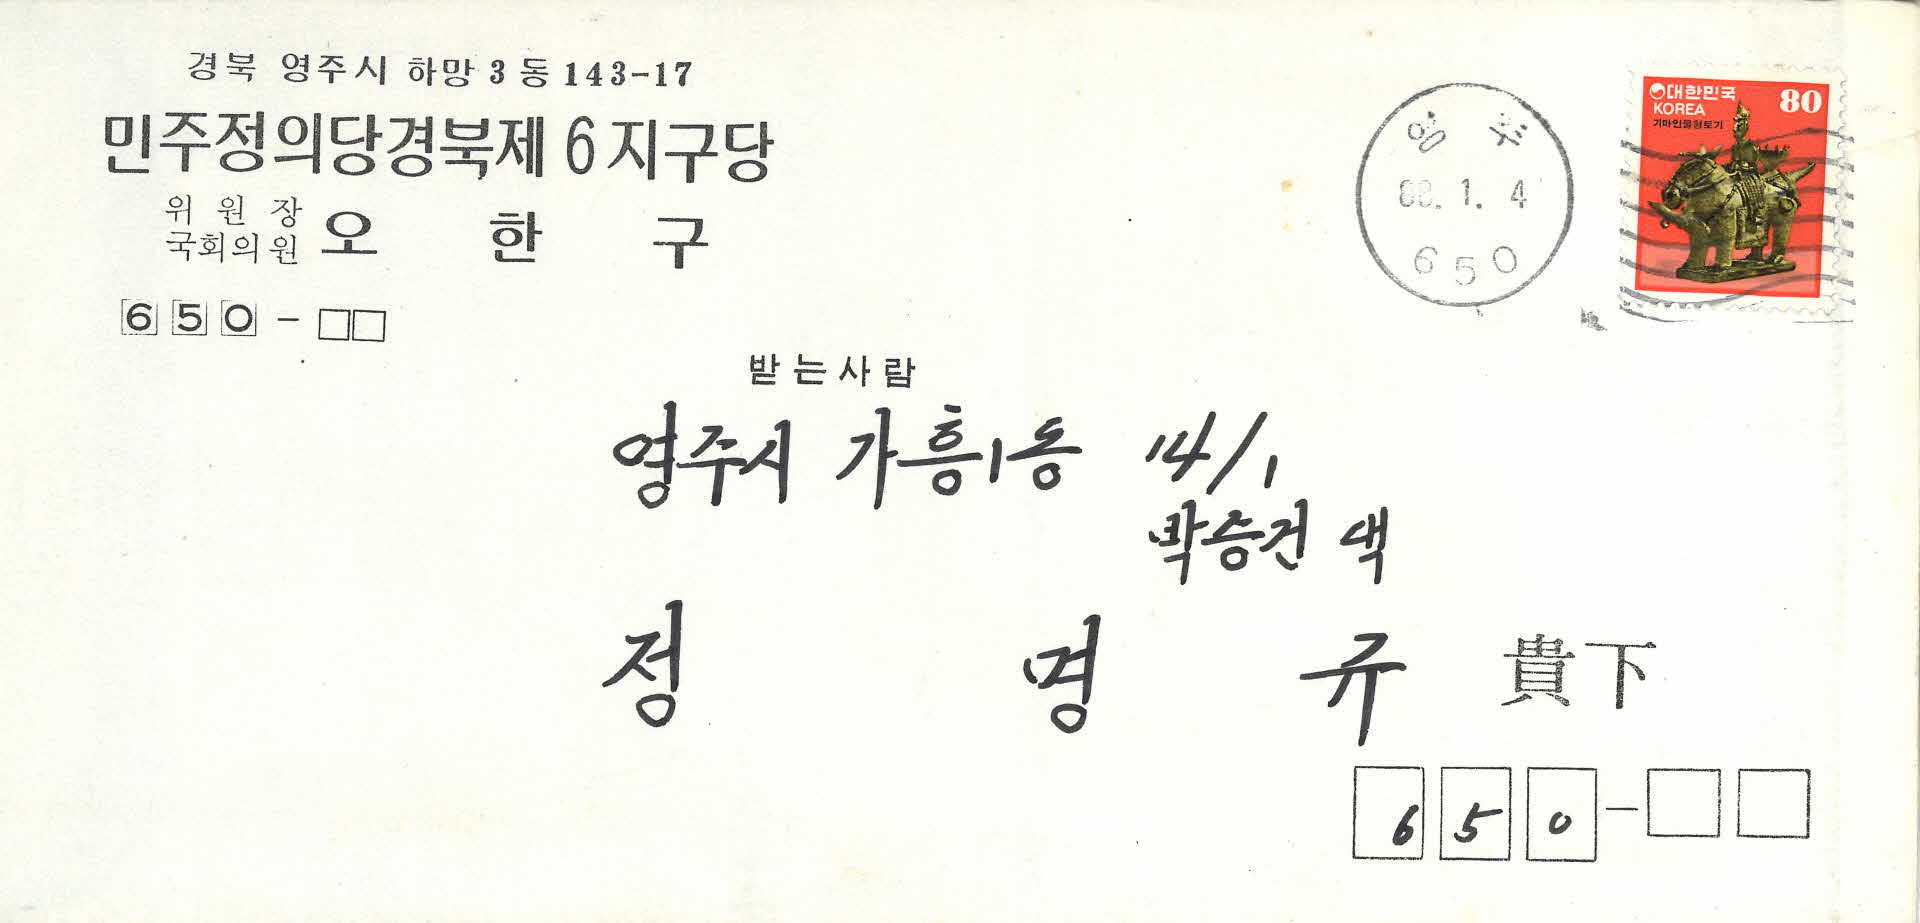 경북 영주시 하망 3 동 143-17
민주정의당경북제 6 지구당
위 원 장
국회의원 오 한 구
6 5 0 -
대한민국 80
KOREA
기마인물형토기
영 주
88. 1. 4
6 5 0
받는사람
영주시 가흥1동 14/1
박승건 댁
정 명 규 貴下
6 5 0 -